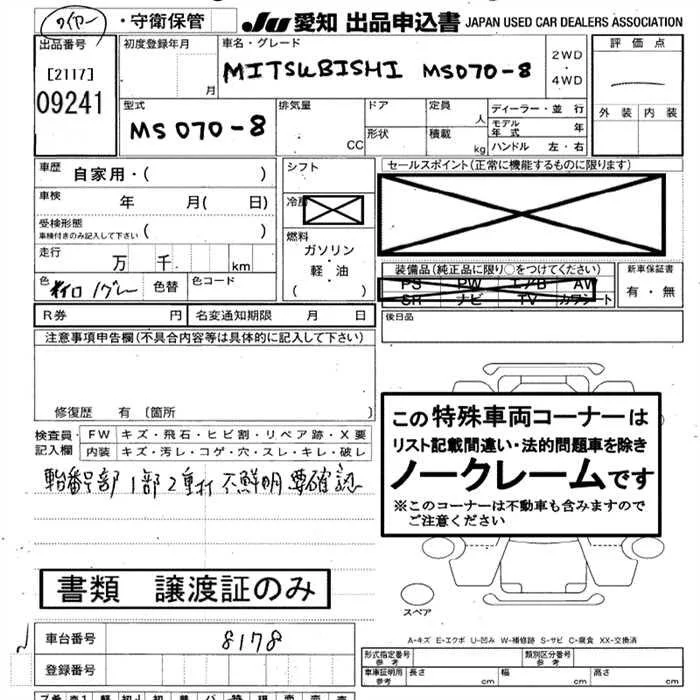 ・守衛保管
JU 愛知 出品申込書 JAPAN USED CAR DEALERS ASSOCIATION
出品番号
[2117]
09241
初度登録年月
月
車名・グレード
MITSUBISHI MS070-8
2WD
・
4WD
評価点
外装 内装
型式
MS070-8
排気量
CC
ドア
形状
定員
人
積載
kg
ディーラー・並行
モデル年式 年
ハンドル 左・右
車歴
自家用・( )
車検
年 月( 日)
受検形態
車検付きのみ記入して下さい ( )
走行
万 千 km
色
グレー
色替
色コード
シフト
冷房
燃料
ガソリン
・
軽・油
( )
セールスポイント(正常に機能するものに限ります)
装備品(純正品に限り○をつけてください)
PS PW エアB AW
SR ナビ TV カワシート
新車保証書
有・無
R券 円
名変通知期限 月 日
後日品
注意事項申告欄(不具合内容等は具体的に記入して下さい)
修復歴 有 〔箇所 〕
検査員記入欄
FW キズ・飛石・ヒビ割・リペア跡・X要
内装 キズ・汚レ・コゲ・穴・スレ・キレ・破レ
1部2重打 不鮮明 要確認
この特殊車両コーナーは
リスト記載間違い・法的問題車を除き
ノークレームです
※このコーナーは不動車も含みますので
ご注意ください
書類 譲渡証のみ
スペア
A-キズ E-エクボ U-凹み W-補修跡 S-サビ C-腐食 XX-交換済
車台番号
8178
登録番号
形式指定番号
参考
類別区分番号
参考
車庫証明用
参考
長さ cm
幅 cm
高さ cm